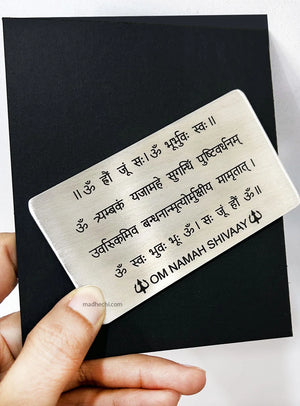 ॥ ॐ हौं जूं सः। ॐ भूर्भुवः स्वः॥
ॐ त्र्यम्बकं यजामहे सुगन्धिं पुष्टिवर्धनम्
उर्वारुकमिव बन्धनान्मृत्योर्मुक्षीय मामृतात् ।
ॐ स्वः भुवः भूः ॐ। सः जूं हौं ॐ॥
OM NAMAH SHIVAAY
madhechi.com